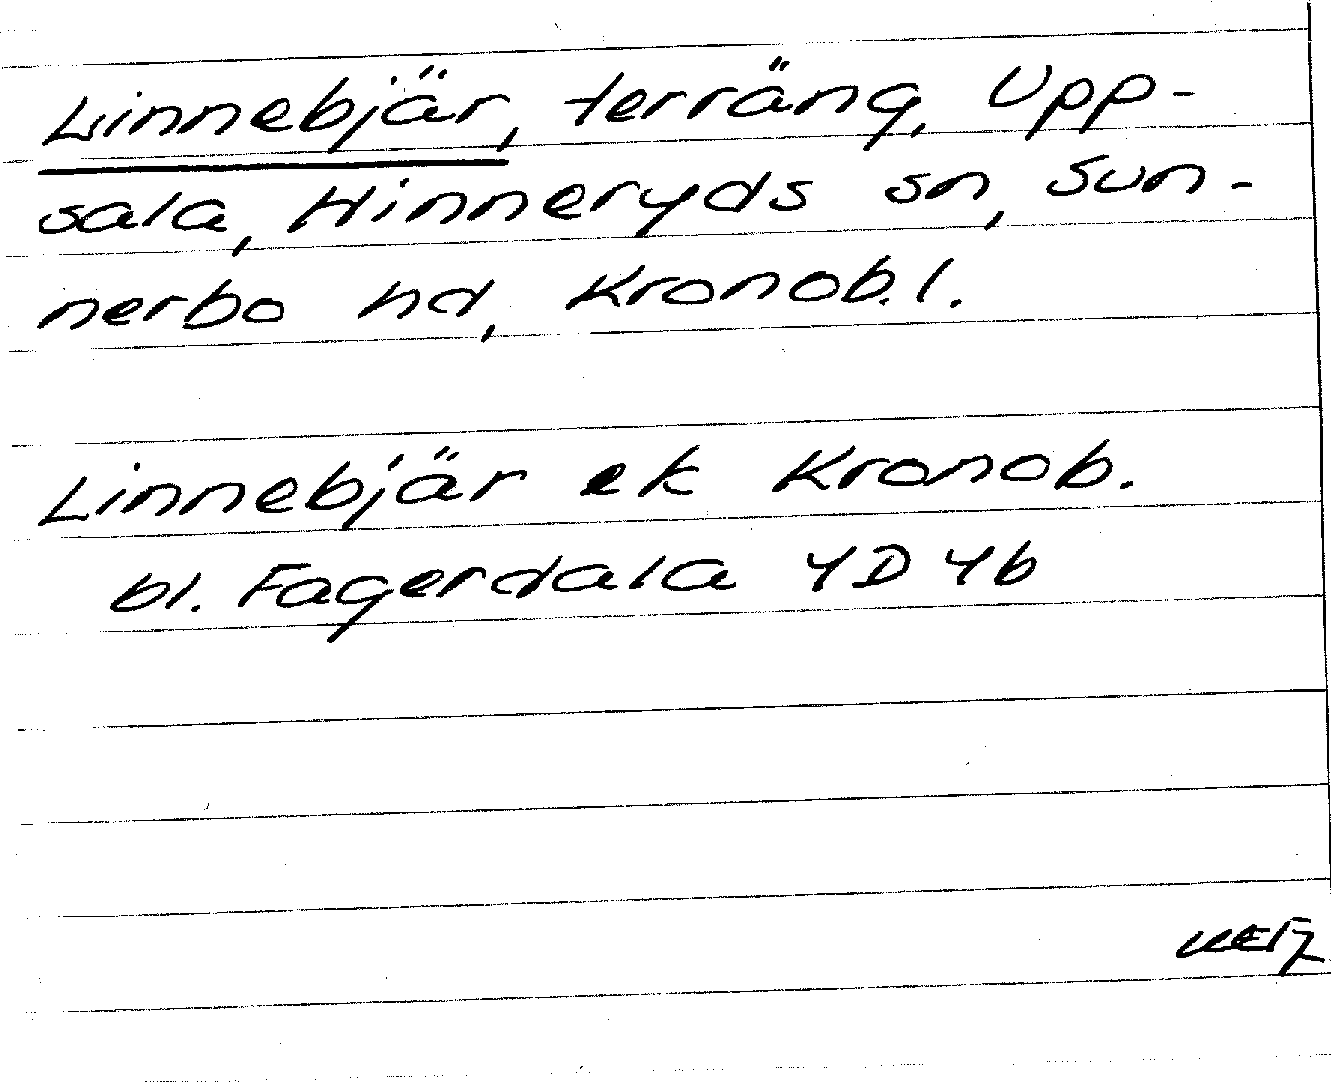 Linnebjär, terräng, Upp-
sala, Hinneryds sn, Sun-
nerbo hd, Kronob. l.
Linnebjär ek Kronob.
bl. Fagerdala 4D 4b